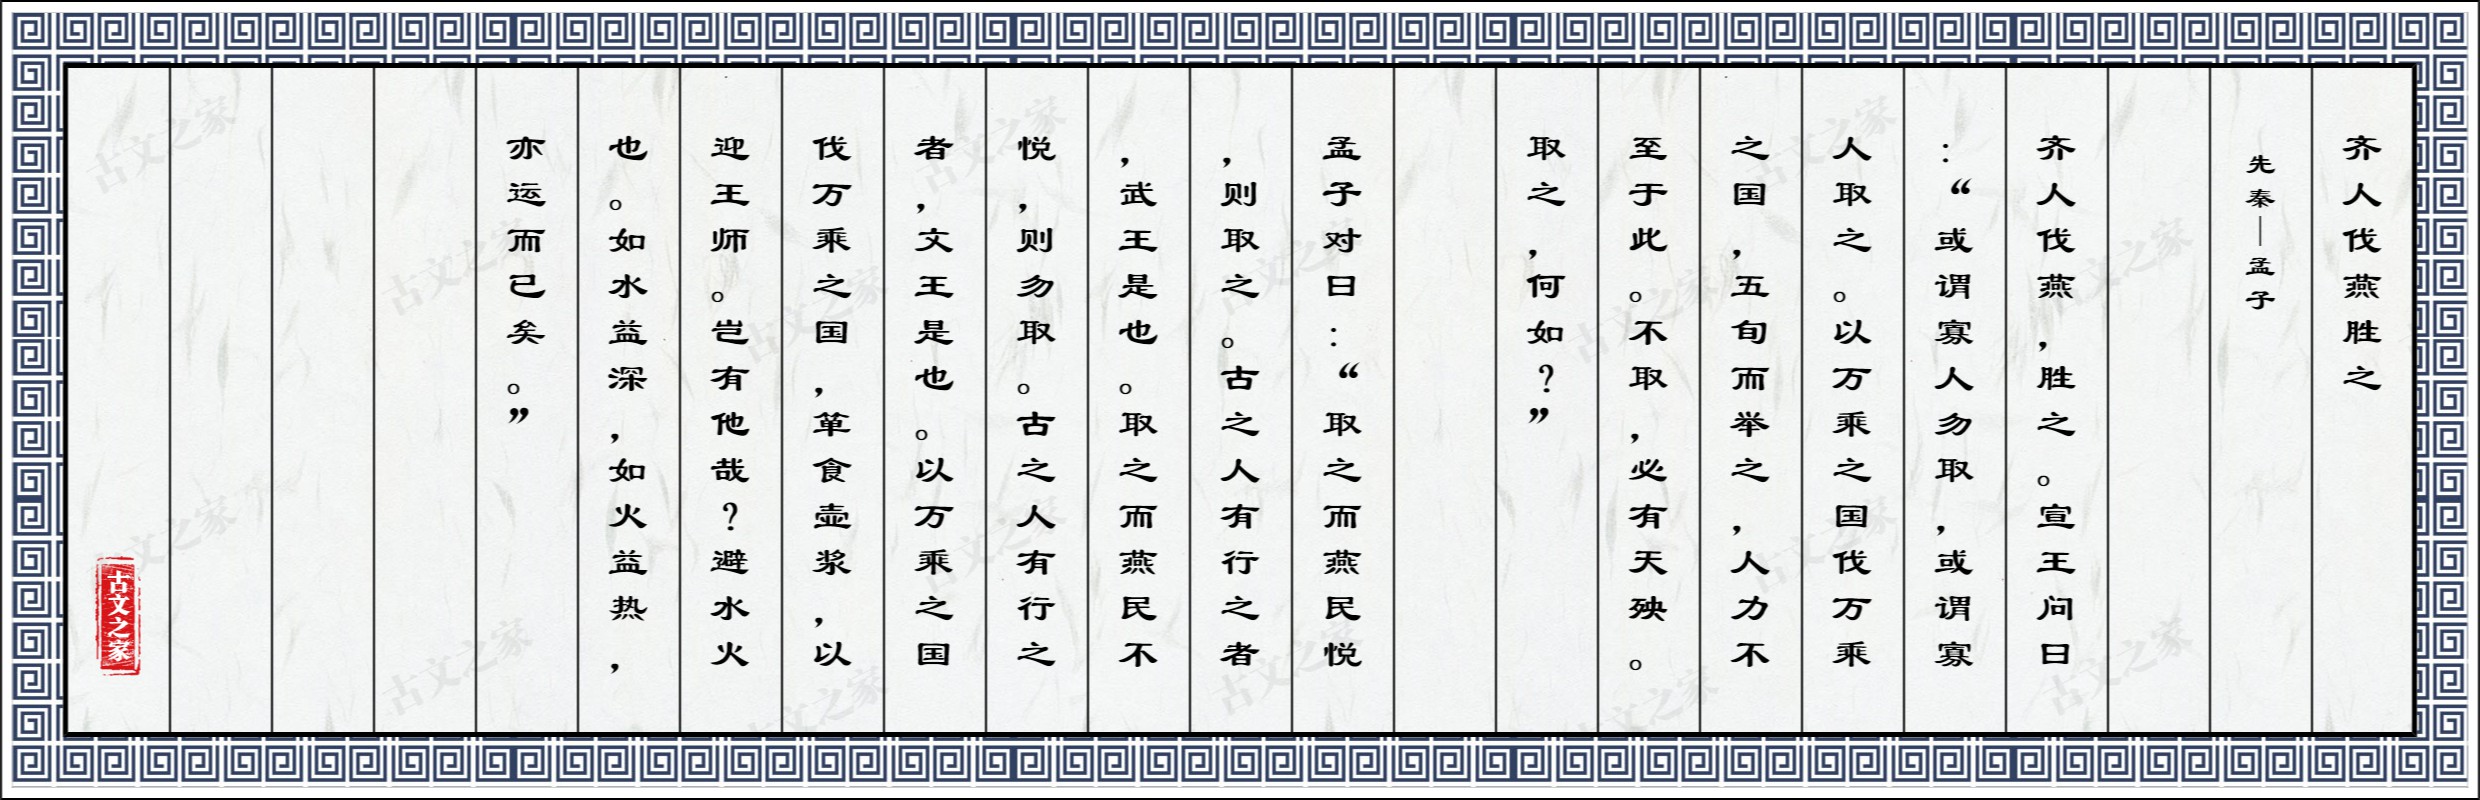 齐人伐燕胜之
先秦—孟子
齐人伐燕，胜之。宣王问曰
：“或谓寡人勿取，或谓寡
人取之。以万乘之国伐万乘
之国，五旬而举之，人力不
至于此。不取，必有天殃。
取之，何如？”
孟子对曰：“取之而燕民悦
，则取之。古之人有行之者
，武王是也。取之而燕民不
悦，则勿取。古之人有行之
者，文王是也。以万乘之国
伐万乘之国，箪食壶浆，以
迎王师。岂有他哉？避水火
也。如水益深，如火益热，
亦运而已矣。”
古文之家